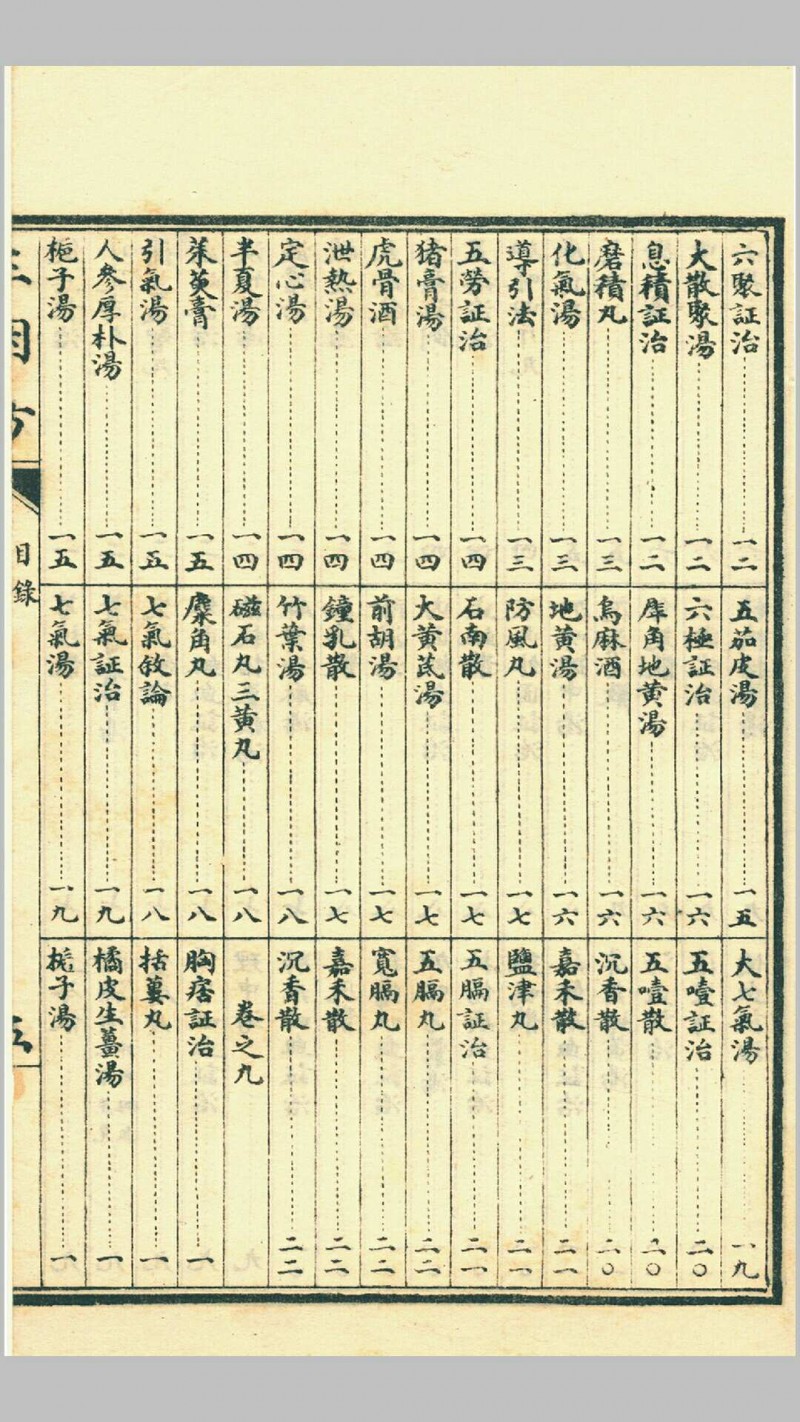 六聚証治 一二
大散聚湯 一二
息積証治 一二
磨積丸 一三
化氣湯 一三
導引法 一三
五勞証治 一四
猪膏湯 一四
虎骨酒 一四
泄熱湯 一四
定心湯 一四
半夏湯 一四
茱萸膏 一五
引氣湯 一五
人參厚朴湯 一五
梔子湯 一五
五茄皮湯 一五
六極証治 一六
犀角地黄湯 一六
烏麻酒 一六
地黄湯 一六
防風丸 一七
石南散 一七
大黄芪湯 一七
前胡湯 一七
鐘乳散 一七
竹葉湯 一八
磁石丸三黄丸 一八
麋角丸 一八
七氣敘論 一八
七氣証治 一九
七氣湯 一九
大七氣湯 一九
五噎証治 二〇
五噎散 二〇
沉香散 二〇
嘉禾散 二一
鹽津丸 二一
五膈証治 二一
五膈丸 二二
寬膈丸 二二
嘉禾散 二二
沉香散 二二
卷之九
胸痞証治 一
括蔞丸 一
橘皮生薑湯 一
梔子湯 一
三因方
目錄
五